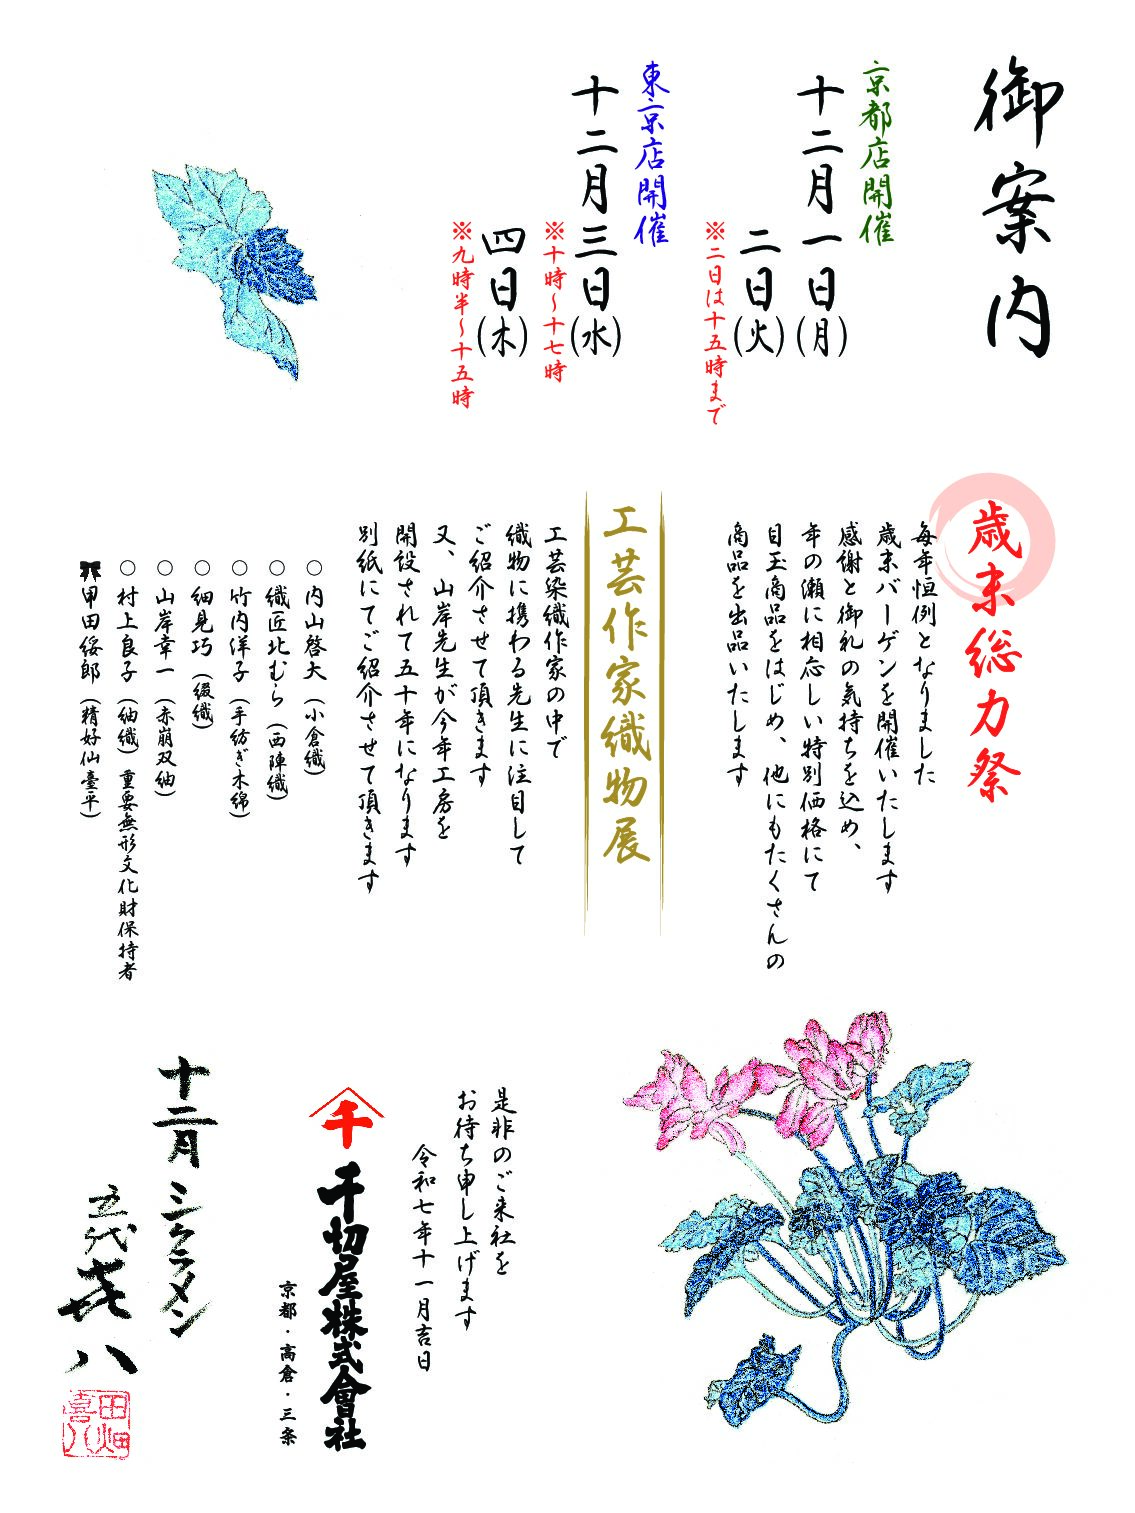 御案内
京都店開催
十二月一日(月)
二日(火)
※二日は十五時まで
東京店開催
十二月三日(水)
※十時～十七時
四日(木)
※九時半～十五時
歳末総力祭
毎年恒例となりました
歳末バーゲンを開催いたします
感謝と御礼の気持ちを込め、
年の瀬に相応しい特別価格にて
目玉商品をはじめ、他にもたくさんの
商品を出品いたします
工芸作家織物展
工芸染織作家の中で
織物に携わる先生に注目して
ご紹介させて頂きます
又、山岸先生が今年工房を
開設されて五十年になります
別紙にてご紹介させて頂きます
○内山啓大(小倉織)
○織匠北むら(西陣織)
○竹内洋子(手紡ぎ木綿)
○細見巧(綴織)
○山岸幸一(赤崩双紬)
○村上良子(紬織)重要無形文化財保持者
甲田綏郎(精好仙臺平)
是非のご来社を
お待ち申し上げます
令和七年十一月吉日
千
千切屋株式會社
京都・高倉・三条
十二月 シクラメン
五代 喜八
田畑喜八